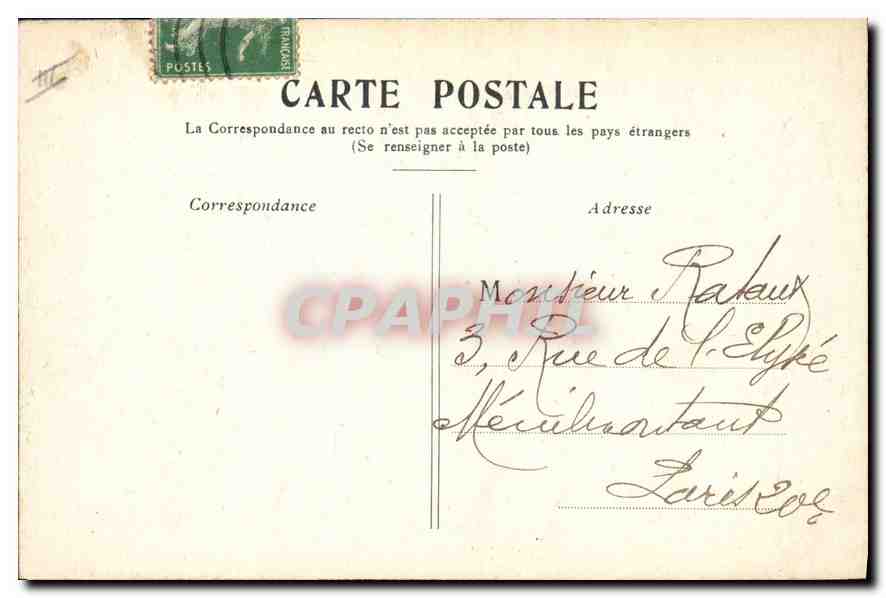 POSTES
FRANÇAISE
CARTE POSTALE
La Correspondance au recto n'est pas acceptée par tous les pays étrangers
(Se renseigner à la poste)
Correspondance
Adresse
CPAPHIL
Monsieur Rataux
3, Rue de l'Elysée
Ménilmontant
Paris 20e